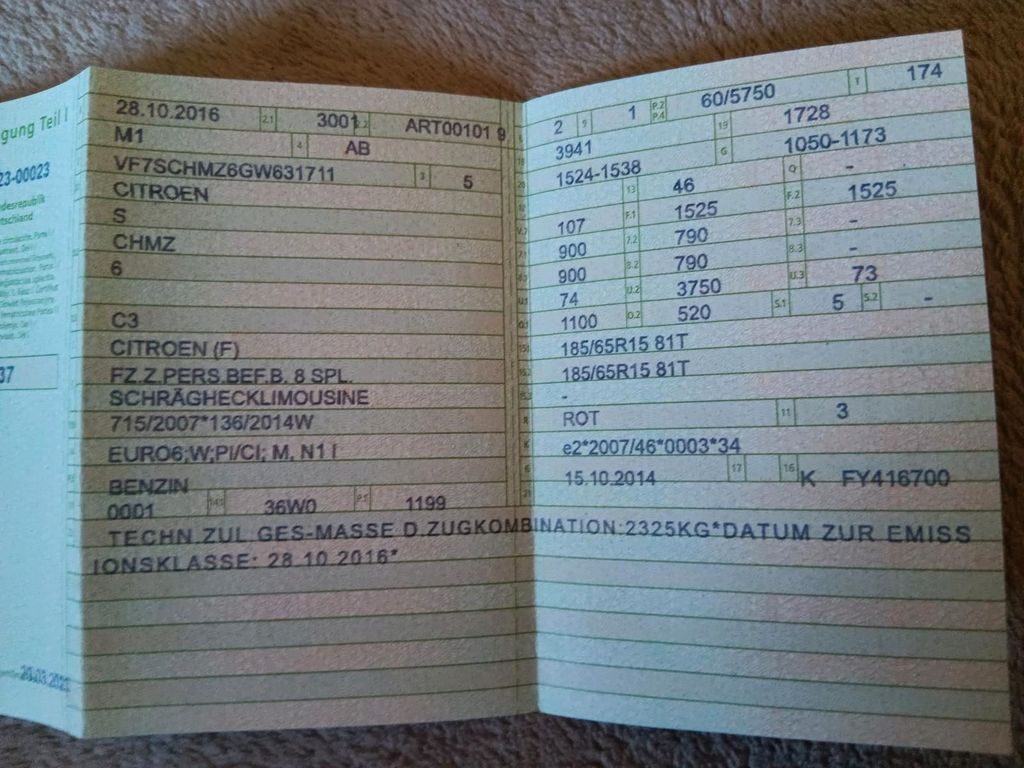 gung Teil I
23-00023
desrepublik
tschland
37
20.03.202
28.10.2016 2.1 3001 2.2 ART00101 9
M1 4 AB
VF7SCHMZ6GW631711 3 5
CITROEN
S
CHMZ
6
C3
CITROEN (F)
FZ.Z.PERS.BEF.B. 8 SPL.
SCHRÄGHECKLIMOUSINE
715/2007*136/2014W
EURO6;W;PI/CI; M, N1 I
BENZIN
0001 14.1 36W0 P.1 1199
2 9 1 P.2 P.4 60/5750 T 174
3941 19 1728
1524-1538 G 1050-1173
13 46 Q -
107 F.1 1525 F.2 1525
900 7.2 790 7.3 -
900 8.2 790 8.3 -
74 U.2 3750 U.3 73
1100 O.2 520 S.1 5 S.2 -
185/65R15 81T
185/65R15 81T
-
R ROT 11 3
K e2*2007/46*0003*34
6 15.10.2014 17 16 K FY416700
TECHN.ZUL.GES-MASSE D.ZUGKOMBINATION:2325KG*DATUM ZUR EMISS
IONSKLASSE: 28.10.2016*